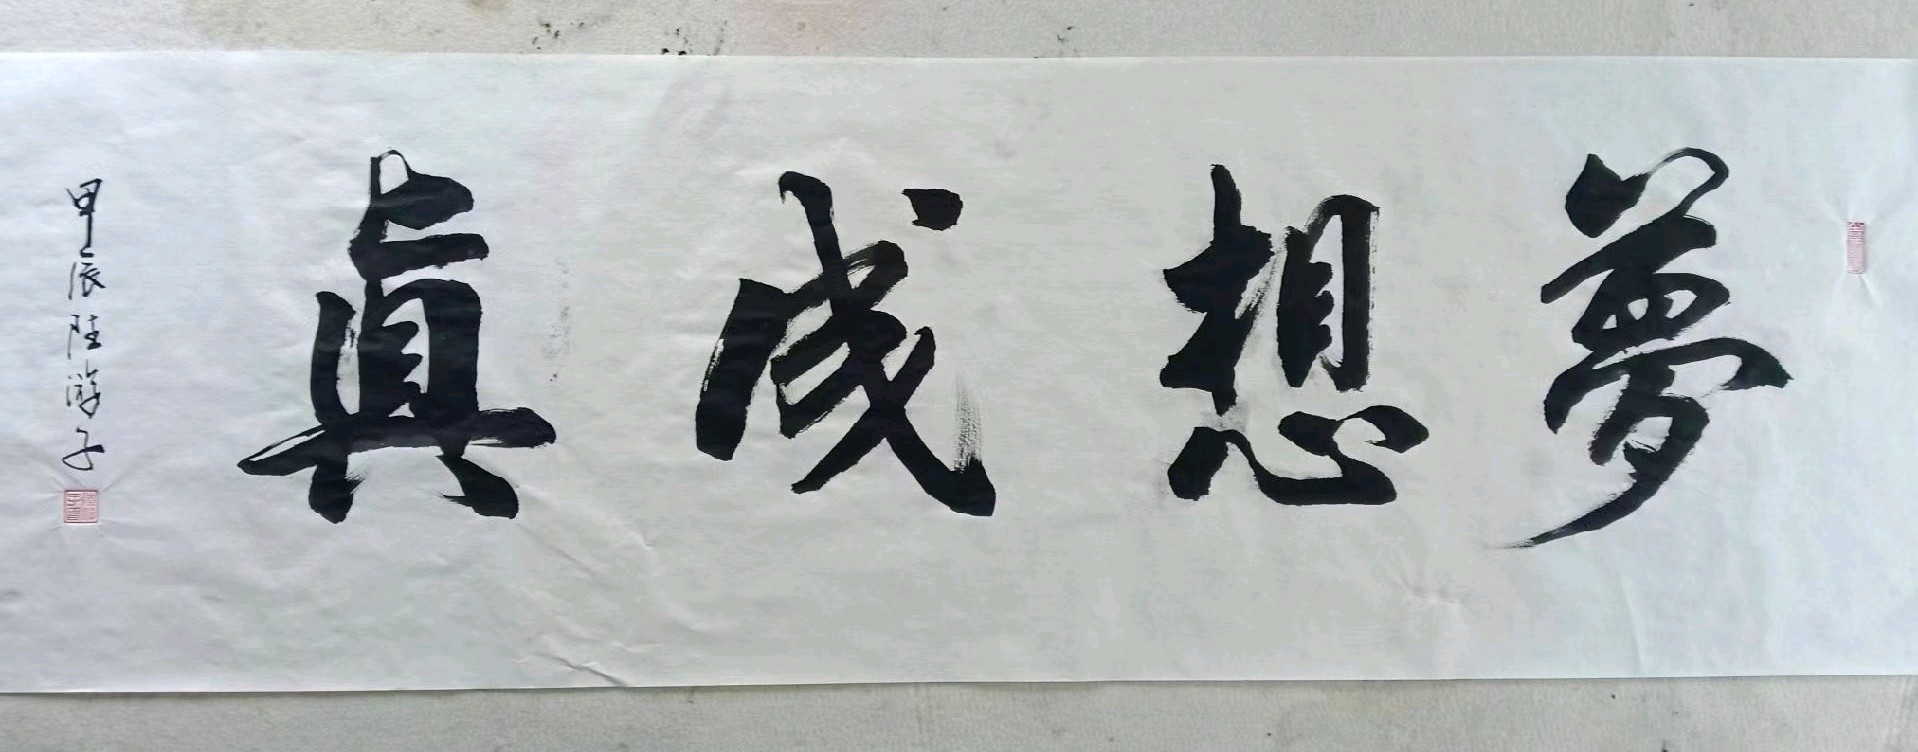 夢想成真
甲辰陸游子